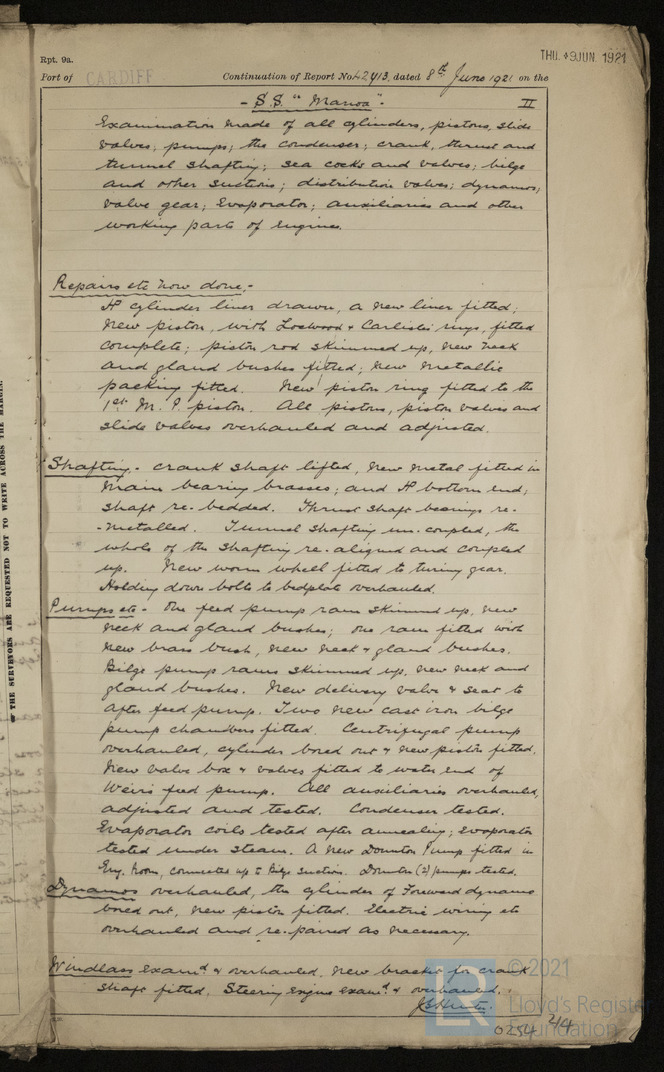 Rpt. 9a.
THU. 9 JUN. 1921
Port of CARDIFF Continuation of Report No. 42413, dated 8th June 1921 on the
- S.S. "Maroa" - II
Examination made of all cylinders, pistons, slide
valves; pumps; the condenser; crank, thrust and
tunnel shafting; sea cocks and valves; bilge
and other suctions; distribution valves; dynamos;
valve gear; Evaporator; auxiliaries and other
working parts of engines.
Repairs etc now done,-
H cylinder liner drawn, a new liner fitted;
new piston, with Lockwood & Carlisle rings, fitted
complete; piston rod skimmed up, new neck
and gland bushes fitted; new metallic
packing fitted. New piston ring fitted to the
1st M.P. piston. All pistons, piston valves and
slide valves overhauled and adjusted.
Shafting - crank shaft lifted, new metal fitted in
main bearing brasses; and H bottom end;
shaft re-bedded. Thrust shaft bearings re-
-metalled. Tunnel shafting un-coupled, the
whole of the shafting re-aligned and coupled
up. New worm wheel fitted to turning gear.
Holding down bolts to bedplate overhauled.
Pumps etc - One feed pump ram skimmed up, new
neck and gland bushes; one ram fitted with
new brass bush, new neck & gland bushes.
Bilge pump rams skimmed up, new neck and
gland bushes. New delivery valve & seat to
after feed pump. Two new cast iron bilge
pump chambers fitted. Centrifugal pump
overhauled, cylinder bored out & new piston fitted.
New valve box & valves fitted to water end of
Weirs feed pump. All auxiliaries overhauled,
adjusted and tested. Condenser tested.
Evaporator coils tested after annealing; Evaporator
tested under steam. A new Downton Pump fitted in
Eng. Room, connected up to Bilge suction. Downton (2) pumps tested.
Dynamos overhauled, the cylinder of Forward dynamo
bored out, new piston fitted. Electric wiring etc
overhauled and re-paired as necessary.
Windlass examd & overhauled, new bracket for crank
shaft fitted. Steering engine examd & overhauled.
THE SURVEYORS ARE REQUESTED NOT TO WRITE ACROSS THE MARGIN.
©2021
Lloyd's Register
Foundation
LR
0254